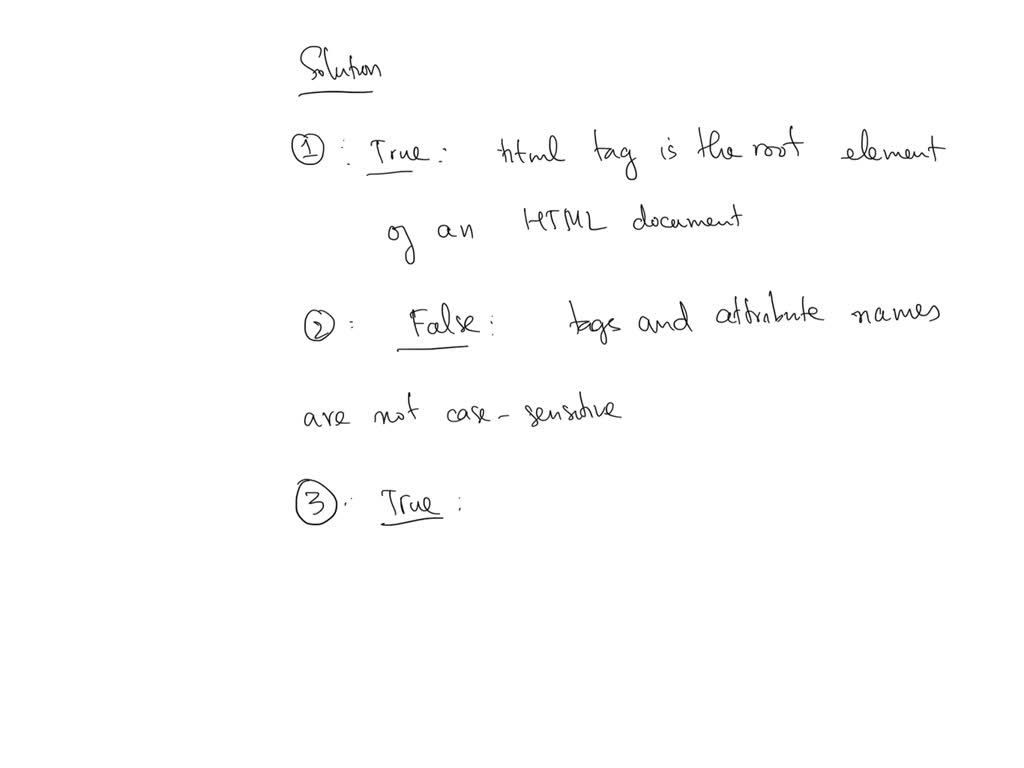 Solution
① : True : html tag is the root element
of an HTML document
② : False : tags and attribute names
are not case-sensitive
③ . True :